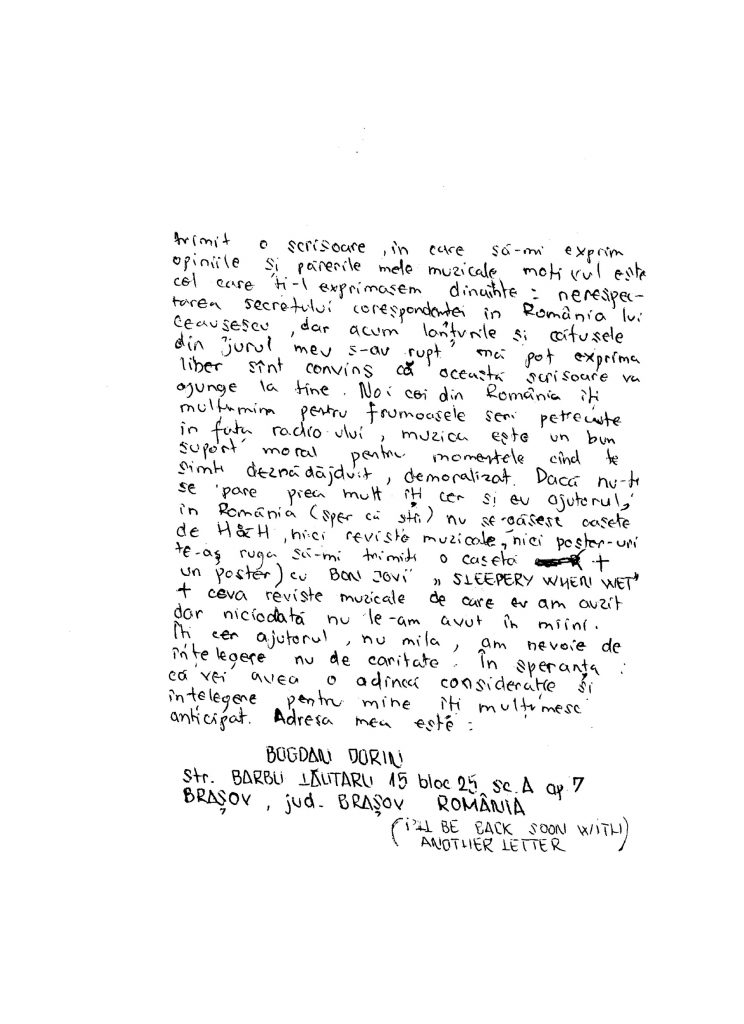 trimit o scrisoare, în care să-mi exprim
opiniile și părerile mele muzicale, motivul este
cel care ți-l exprimasem dinainte: nerespec-
tarea secretului corespondenței în România lui
Ceaușescu, dar acum lanțurile și cătușele
din jurul meu s-au rupt mă pot exprima
liber sînt convins că această scrisoare va
ajunge la tine. Noi cei din România îți
mulțumim pentru frumoasele seri petrecute
în fața radioului, muzica este un bun
suport moral pentru momentele cînd te
simți deznădăjduit, demoralizat. Dacă nu-ți
se pare prea mult îți cer și eu ajutorul,
în România (sper că știi) nu se găsesc casete
de H&H, nici reviste muzicale, nici poster-uri
te-aș ruga să-mi trimiți o casetă +
un poster) cu BON JOVI „SLEEPERY WHEN WET"
+ ceva reviste muzicale de care eu am auzit
dar niciodată nu le-am avut în mîini.
Îți cer ajutorul, nu mila, am nevoie de
înțelegere nu de caritate. În speranța
că vei avea o adîncă considerație și
înțelegere pentru mine îți mulțumesc
anticipat. Adresa mea este:
BOGDAN DORIN
str. BARBU LĂUTARU 15 bloc 25, sc. A ap 7
BRAȘOV, jud. BRAȘOV ROMÂNIA
(I'LL BE BACK SOON WITH)
ANOTHER LETTER